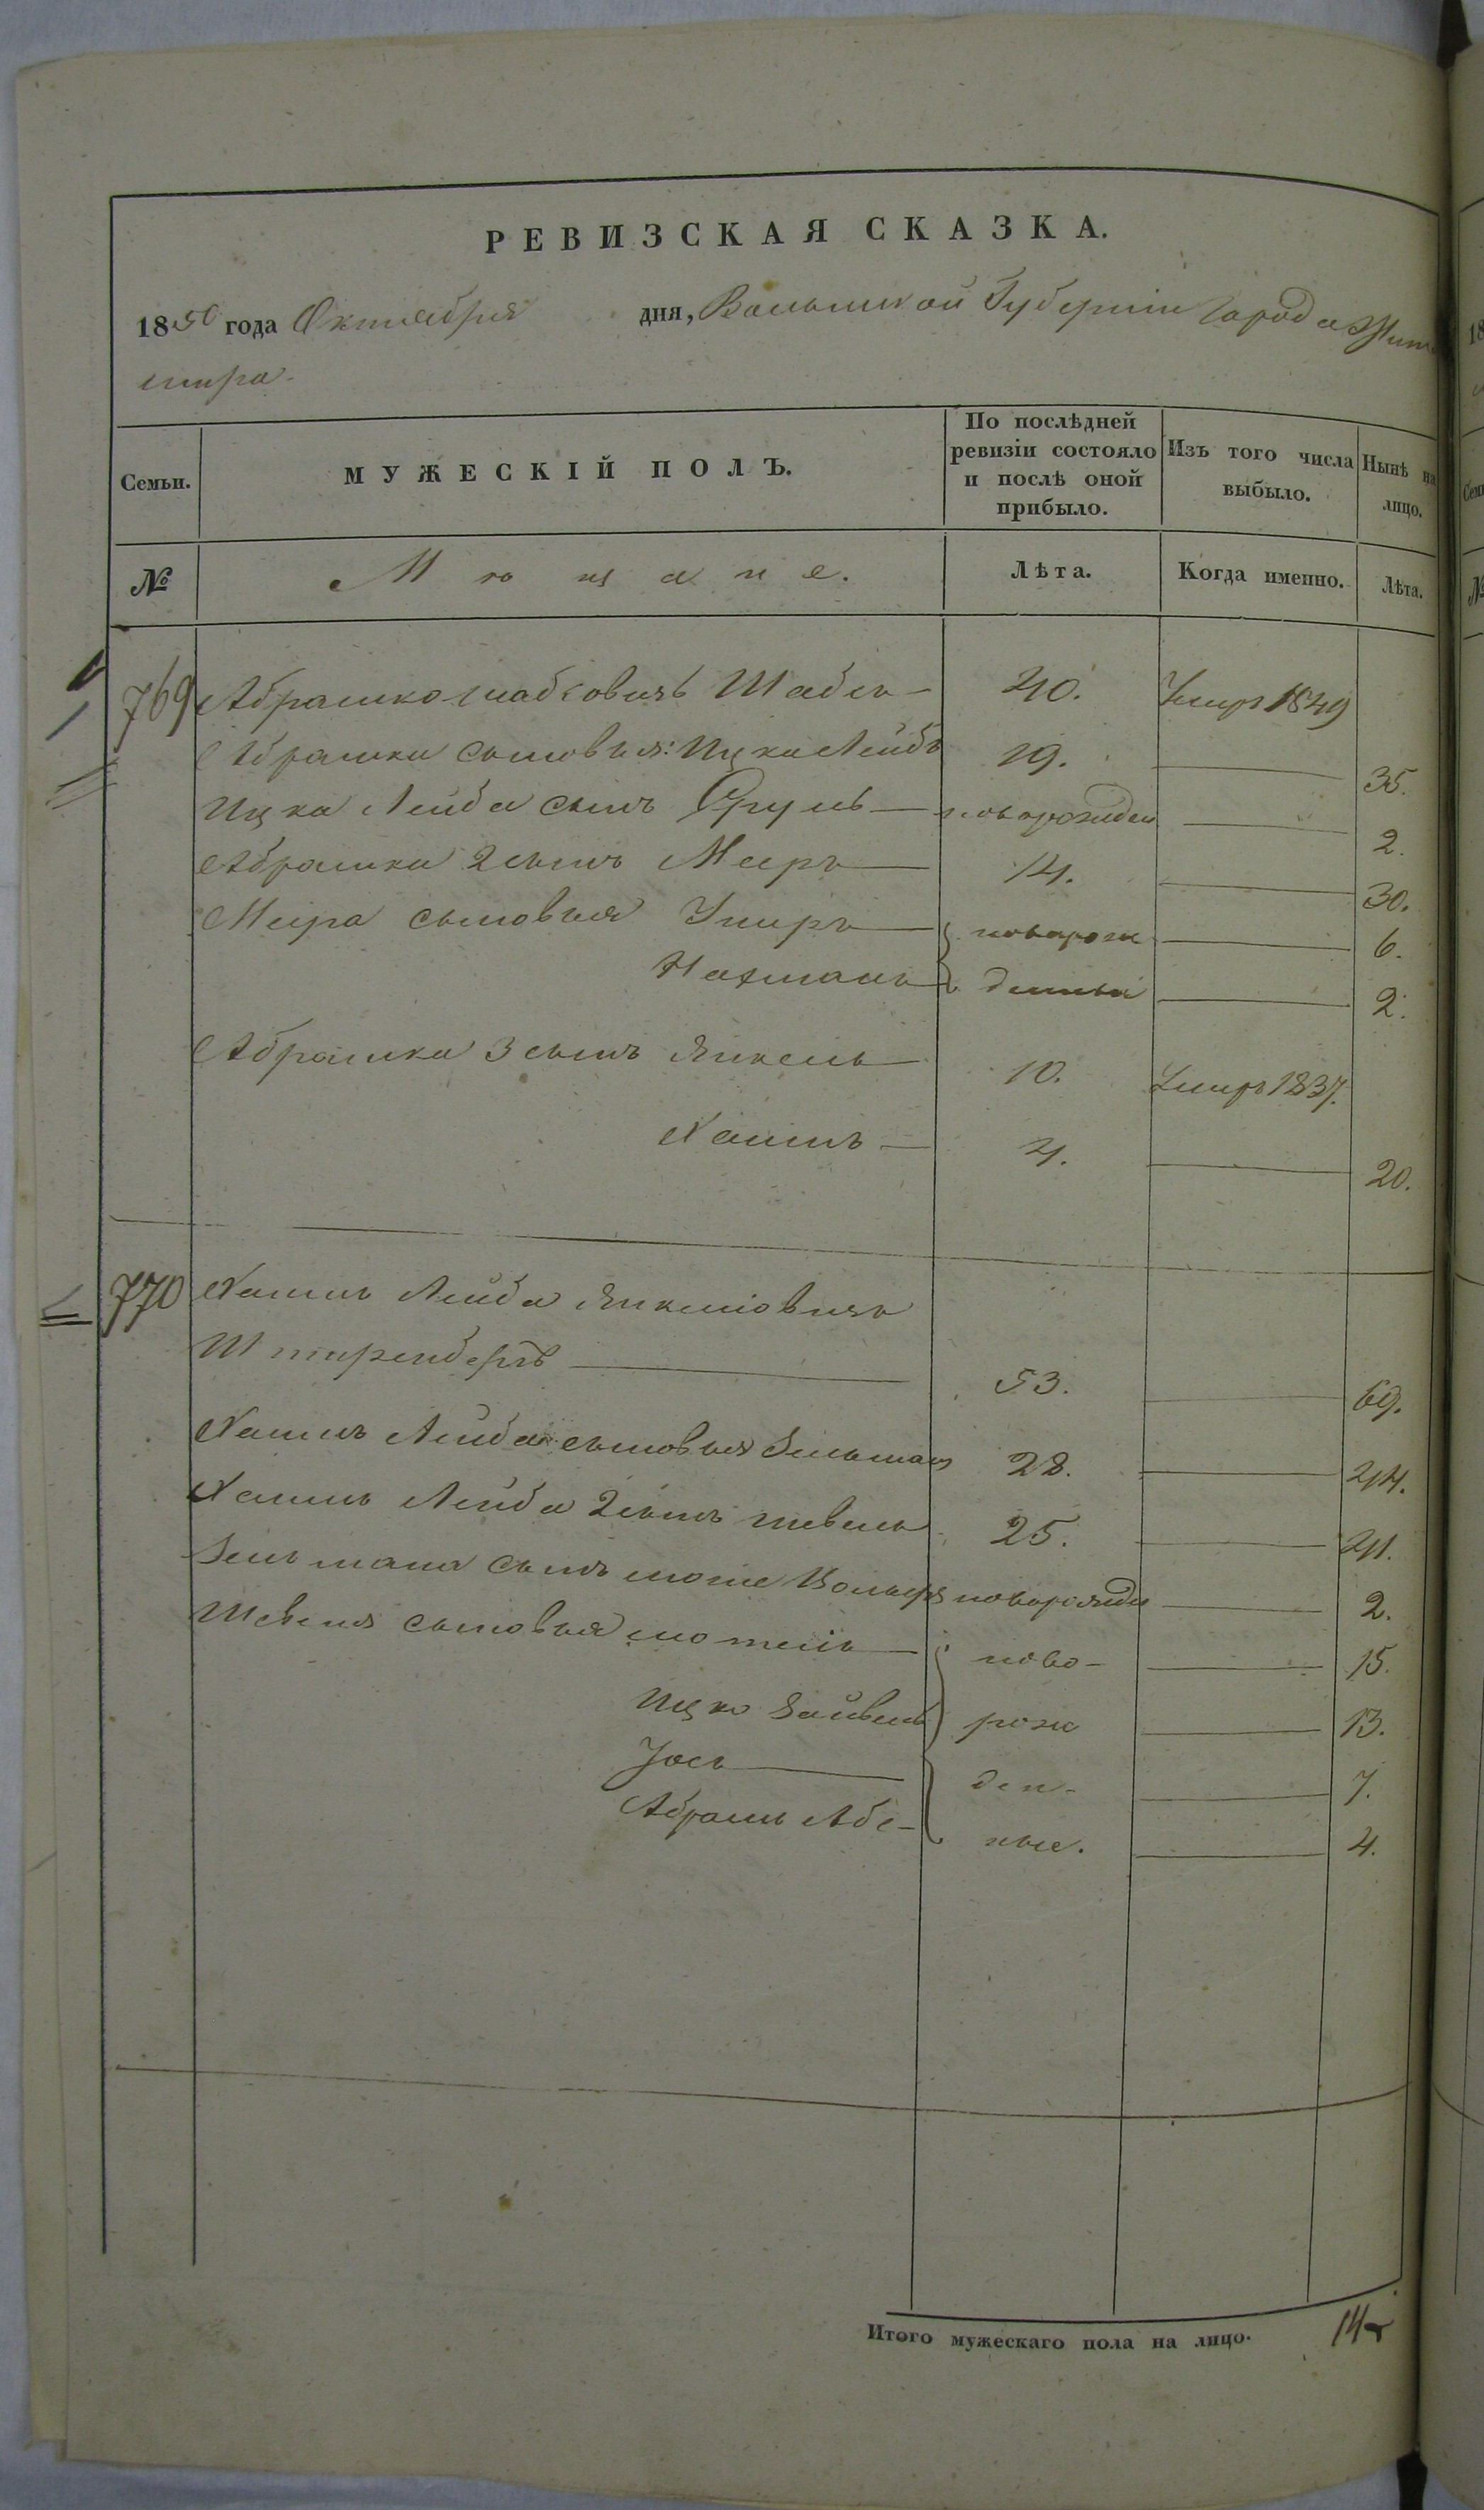 РЕВИЗСКАЯ СКАЗКА.
1850 года Октября дня, Волынской Губернiи города Жито
мира
Семьи.
МУЖЕСКІЙ ПОЛЪ.
По послѣдней
ревизіи состояло
и послѣ оной
прибыло.
Изъ того числа
выбыло.
Нынѣ на
лицо.
№
Мѣщане.
Лѣта.
Когда именно.
Лѣта.
769 Абрашко Шабсовичъ Шабсъ 40. Умеръ 1849
Абрашки сыновья: Ицка Лейба 19. 35.
Ицка Лейба сынъ Сруль новорожден 2.
Абрашки 2 сынъ Мееръ 14. 30.
Меера сыновья новорож 6.
Нахманъ денные 2.
Абрашки 3 сынъ Янкель 10. Умеръ 1837.
Хаимъ 4. 20.
770 Хаимъ Лейба Янкелiовичъ
53. 69.
Хаимъ Лейба сыновья Зельманъ 28. 44.
Хаимъ Лейба 2 сынъ 25. 41.
Зельмана сынъ Вольфъ новорожден 2.
сыновья ново- 15.
Ицко Зайвель рож 13.
Іось ден- 7.
Абрамъ Аба ные. 4.
Итого мужескаго пола на лицо. 14